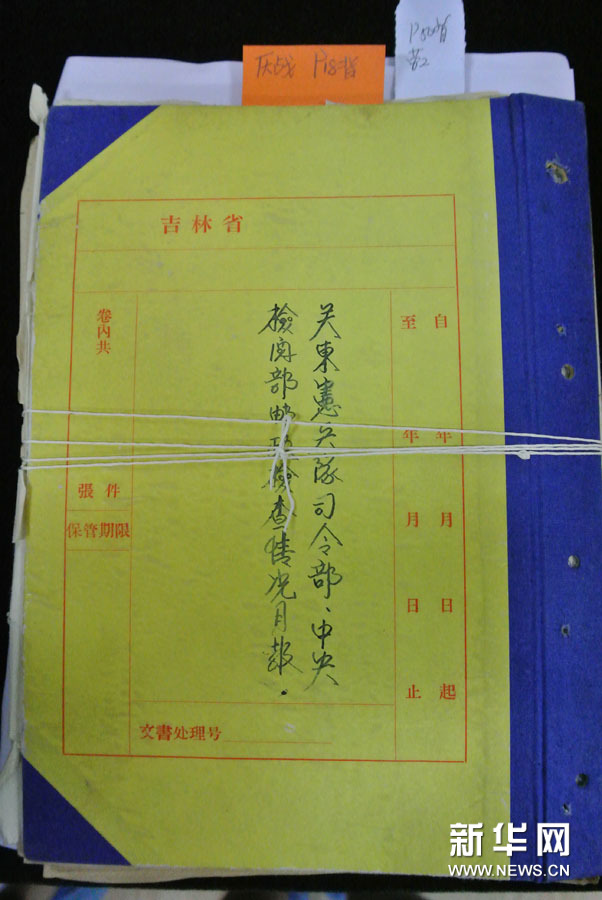 厌战 P18背
P50背
吉林省
自 年 月 日 起
至 年 月 日 止
关东憲兵隊司令部、中央
檢閱部邮政檢查情况月報.
卷內共
張 件
保管期限
文書处理号
新华网
WWW.NEWS.CN